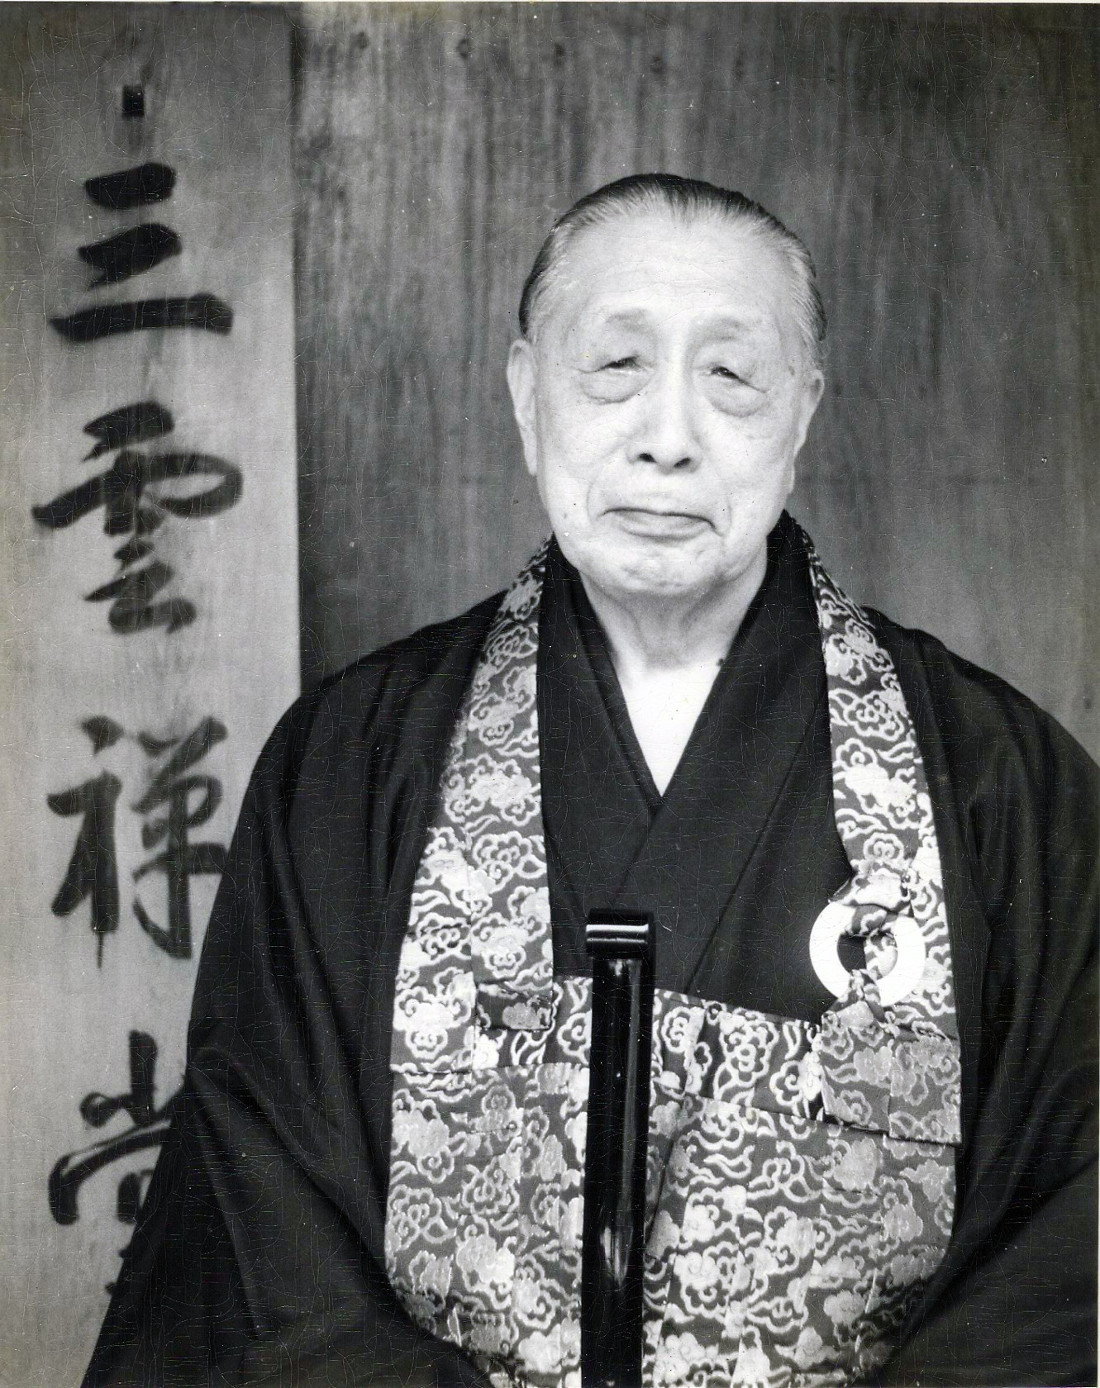 三雲禅堂